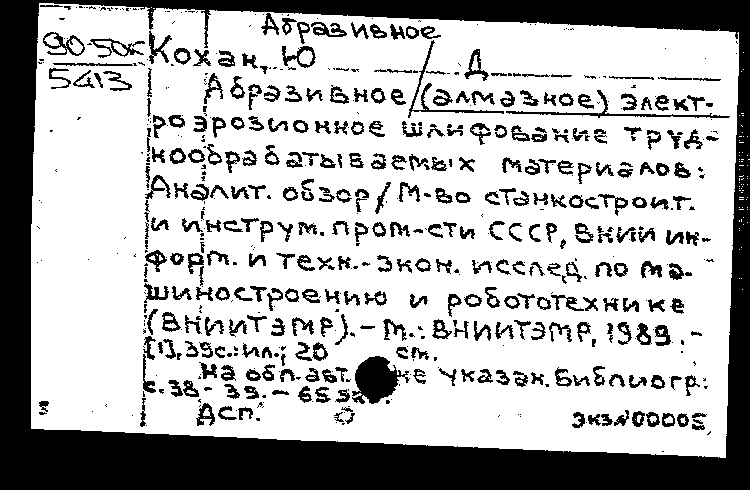 Абразивное
90-50к Кохан, Ю Д
5413
Абразивное (алмазное) элект-
роэрозионное шлифование труд-
кообрабатываемых материалов:
Аналит. обзор / М-во станкостроит.
и инструм. пром-сти СССР, ВНИИ ин-
форм. и техн.-экон. исслед. по ма-
шиностроению и робототехнике
(ВНИИТЭМР). - М.: ВНИИТЭМР, 1989. -
[1], 39с.: ил.; 20 см.
На обл. авт. не указан. Библиогр.:
с. 38 - 39. -
Дсп. экз N 00005